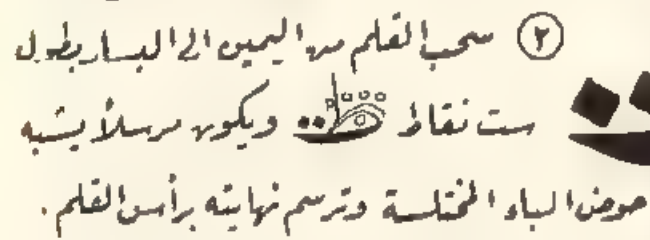 ٢ سحب القلم من اليمين الى اليسار بطول
ست نقاط ويكون مرسلاً يشبه
حوض الباء المختلسة وترسم نهايته برأس القلم .